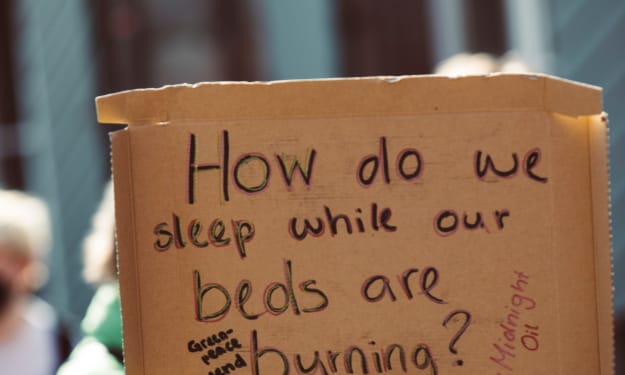 How do we
sleep while our
beds are
burning?
Green-
peace
Midnight
Oil